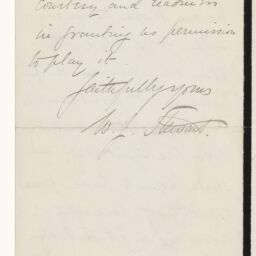 courtesy and readiness
in granting us permission
to play it.
faithfully yours
W. J. Stewart.